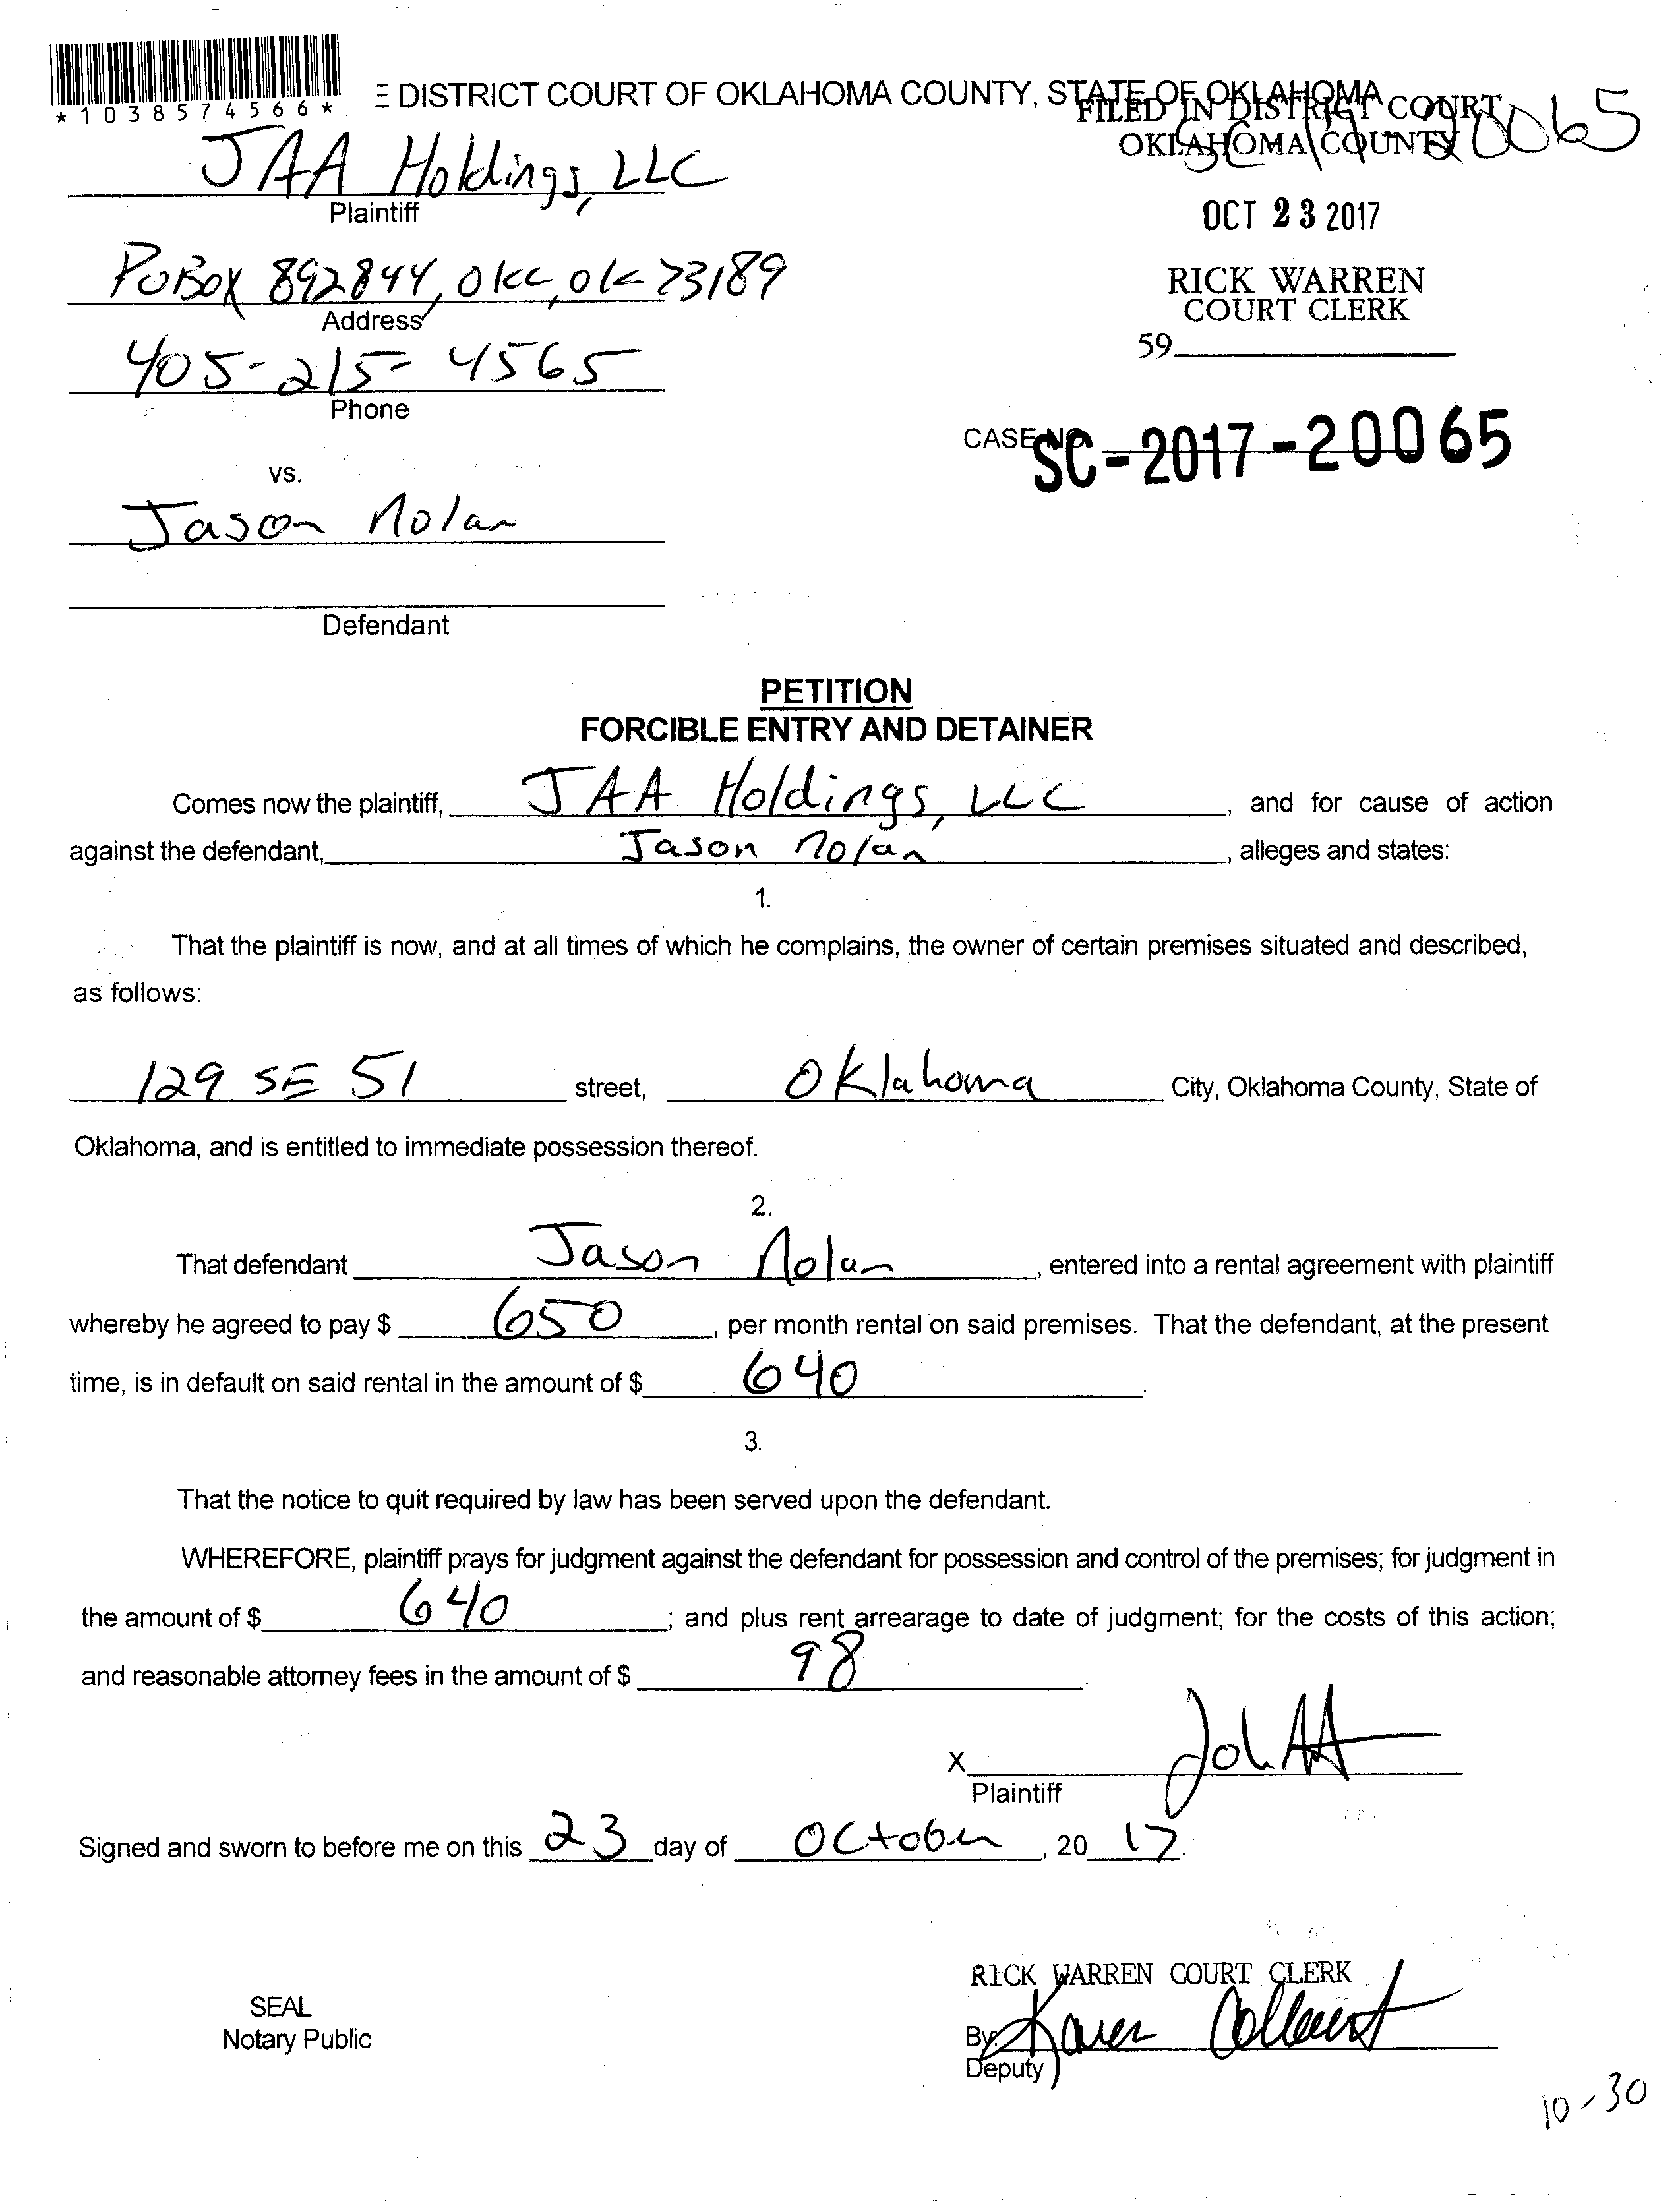 *1038574566*
E DISTRICT COURT OF OKLAHOMA COUNTY, STATE OF OKLAHOMA
FILED IN DISTRICT COURT
OKLAHOMA COUNTY
SC 17 20065
JAA Holdings, LLC
Plaintiff
OCT 23 2017
PO Box 892844, OKC, OK 73189
Address
RICK WARREN
COURT CLERK
59
405-215-4565
Phone
CASE NO. SC-2017-20065
vs.
Jason Nolan
Defendant
PETITION
FORCIBLE ENTRY AND DETAINER
Comes now the plaintiff, JAA Holdings, LLC, and for cause of action
against the defendant, Jason Nolan, alleges and states:
1.
That the plaintiff is now, and at all times of which he complains, the owner of certain premises situated and described,
as follows:
129 SE 51 street, Oklahoma City, Oklahoma County, State of
Oklahoma, and is entitled to immediate possession thereof.
2.
That defendant Jason Nolan, entered into a rental agreement with plaintiff
whereby he agreed to pay $ 650, per month rental on said premises. That the defendant, at the present
time, is in default on said rental in the amount of $ 640.
3.
That the notice to quit required by law has been served upon the defendant.
WHEREFORE, plaintiff prays for judgment against the defendant for possession and control of the premises; for judgment in
the amount of $ 640; and plus rent arrearage to date of judgment; for the costs of this action;
and reasonable attorney fees in the amount of $ 98.
X
Plaintiff
Signed and sworn to before me on this 23 day of October, 20 17.
RICK WARREN COURT CLERK
SEAL
Notary Public
By: Karen
Deputy
10-30